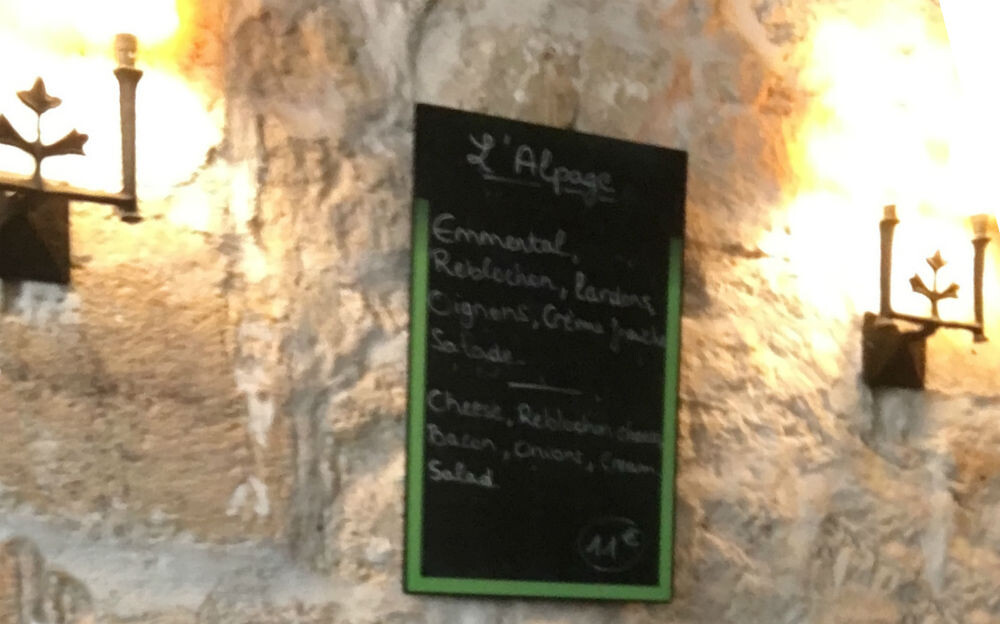 L'Alpage
Emmental,
Reblochon, lardons,
Oignons, Crème fraîche
Salade.
Cheese, Reblochon cheese
Bacon, onions, Cream
Salad
11€